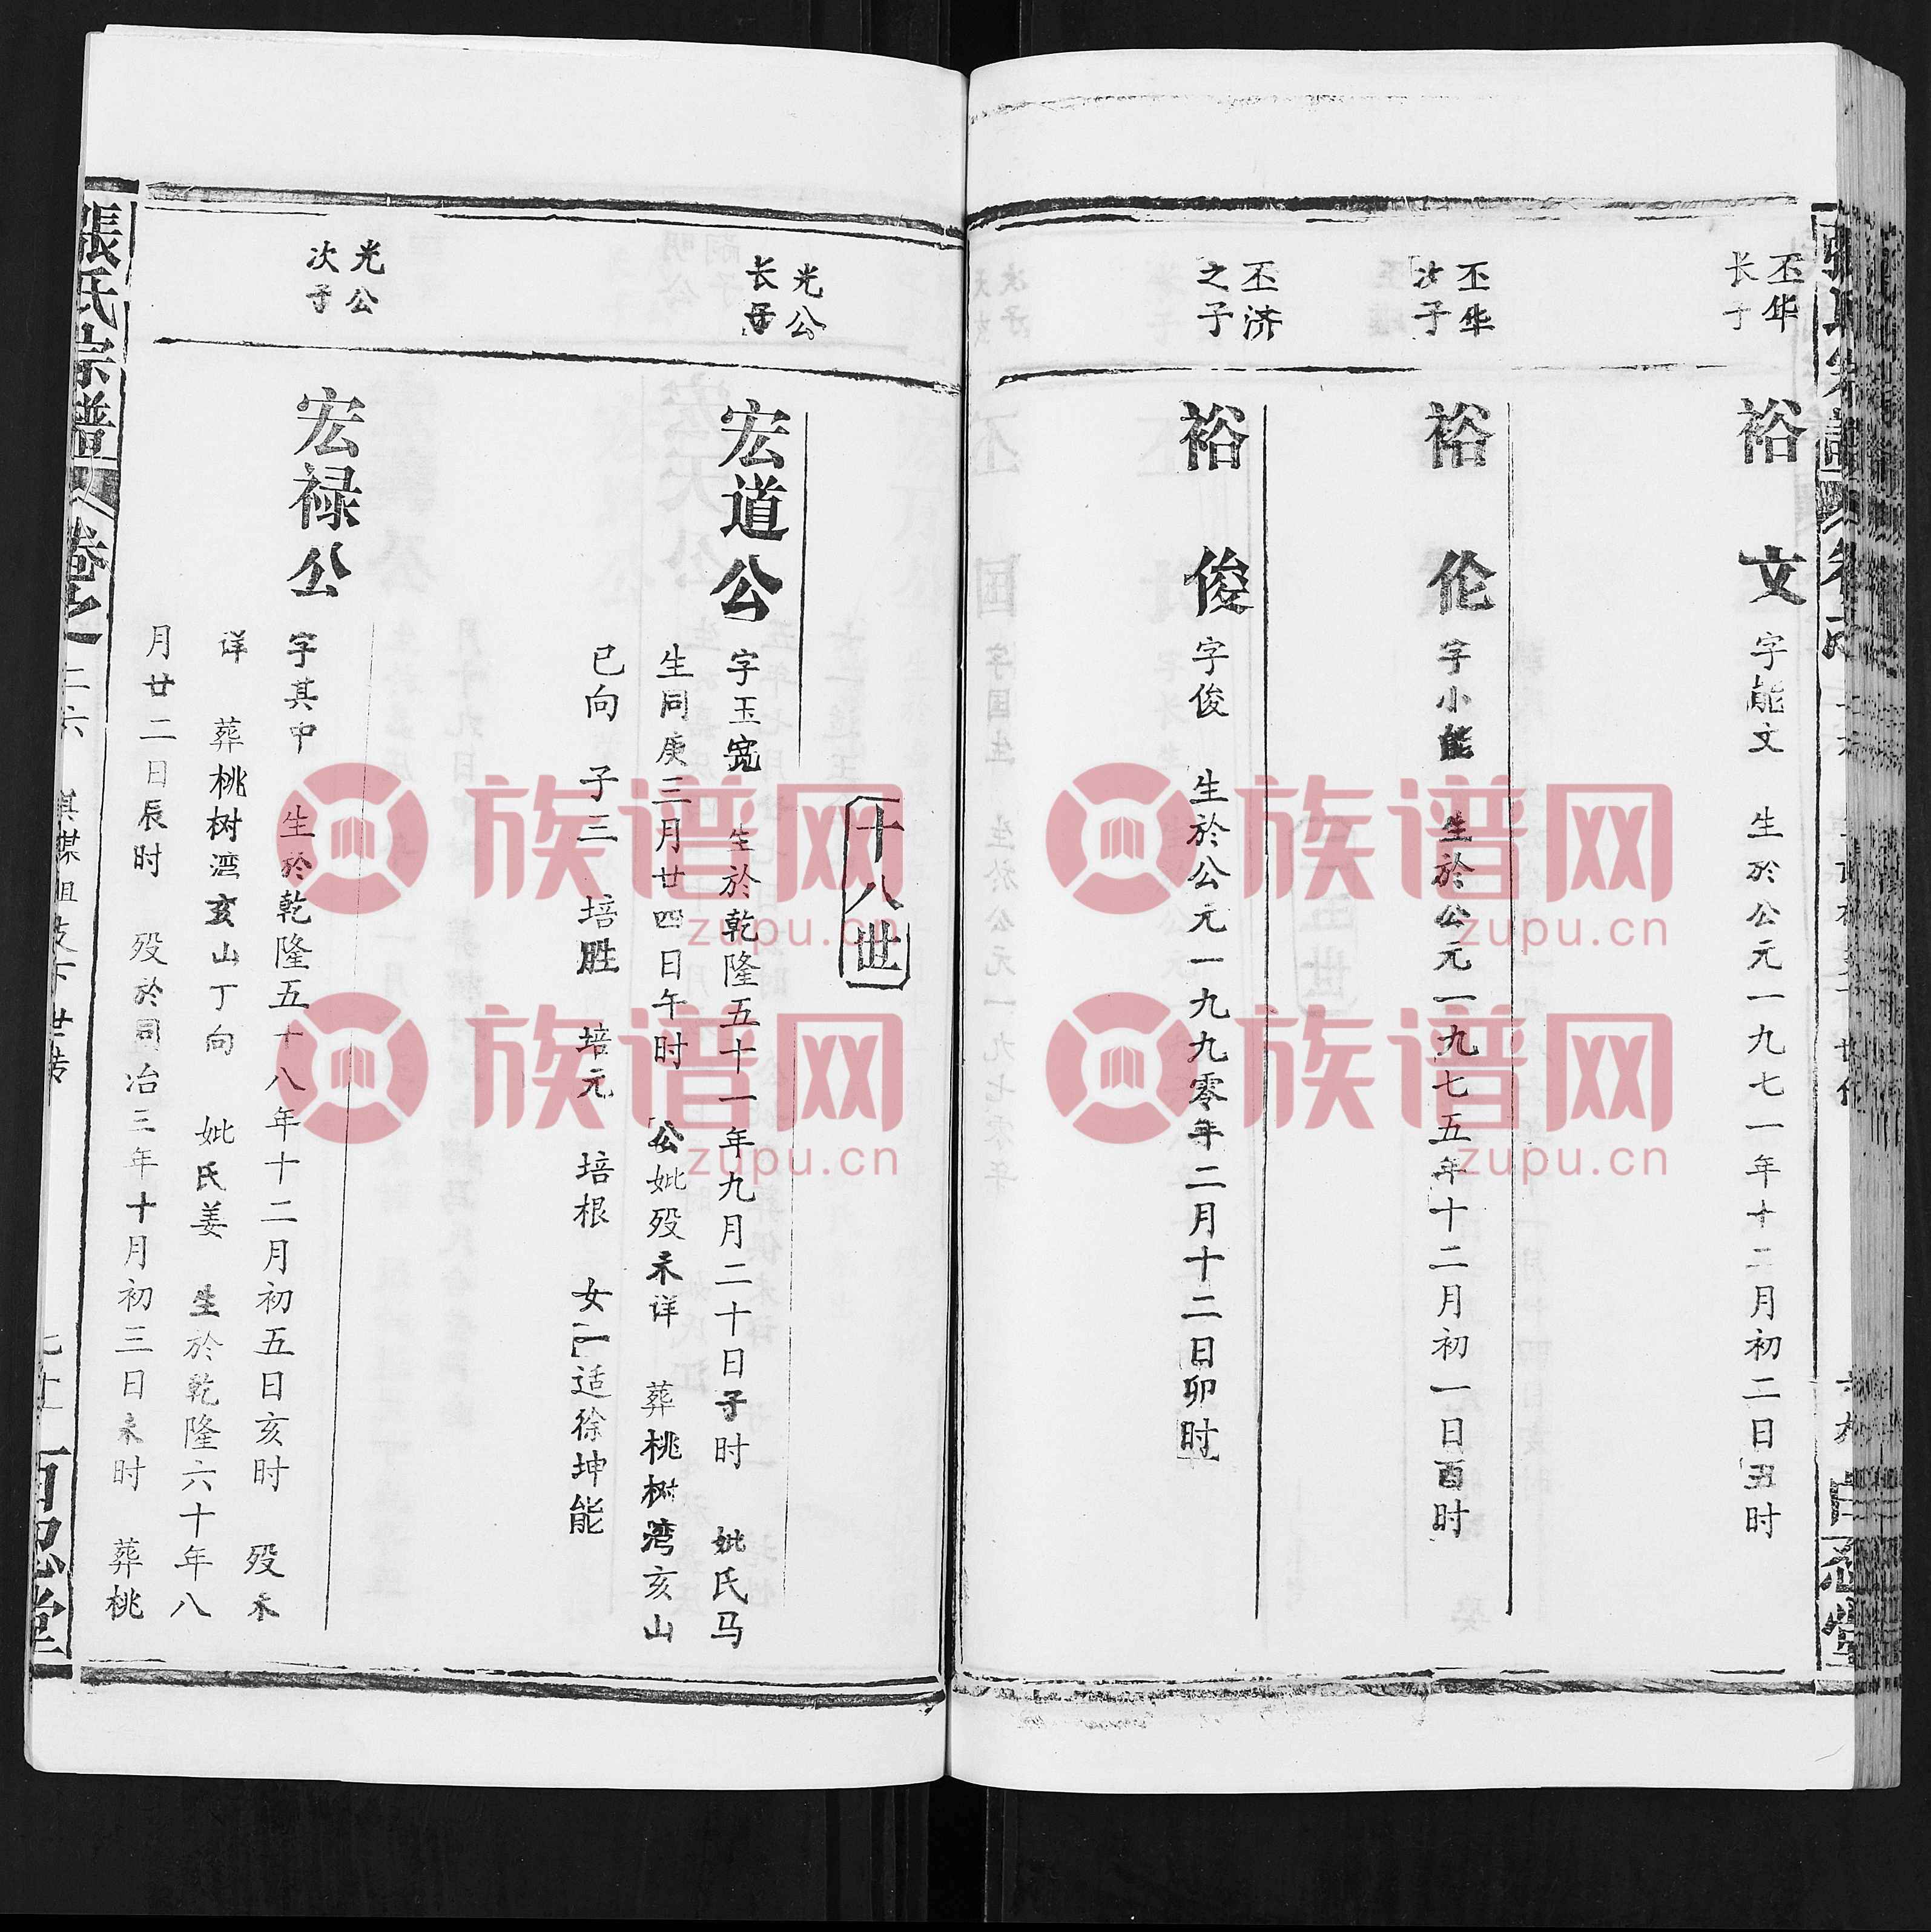 丕华
长子
裕文
字能文 生於公元一九七一年十二月初二日丑时
丕华
次子
裕伦
字小能 生於公元一九七五年十二月初一日酉时
丕济
之子
裕俊
字俊 生於公元一九九零年二月十二日卯时
十八世
光公
长子
宏道公
字玉宽 生於乾隆五十一年九月二十日子时 妣氏马
生同庚三月廿四日午时 公妣殁未详 葬桃树湾亥山
巳向 子三 培胜 培元 培根 女一适徐坤能
光公
次子
宏禄公
字其中 生於乾隆五十八年十二月初五日亥时 殁未
详 葬桃树湾亥山丁向 妣氏姜 生於乾隆六十年八
月廿二日辰时 殁於同治三年十月初三日未时 葬桃
張氏宗譜
卷之
二六
祖支下世传
百忍堂
族谱网
zupu.cn
族谱网
zupu.cn
族谱网
zupu.cn
族谱网
zupu.cn